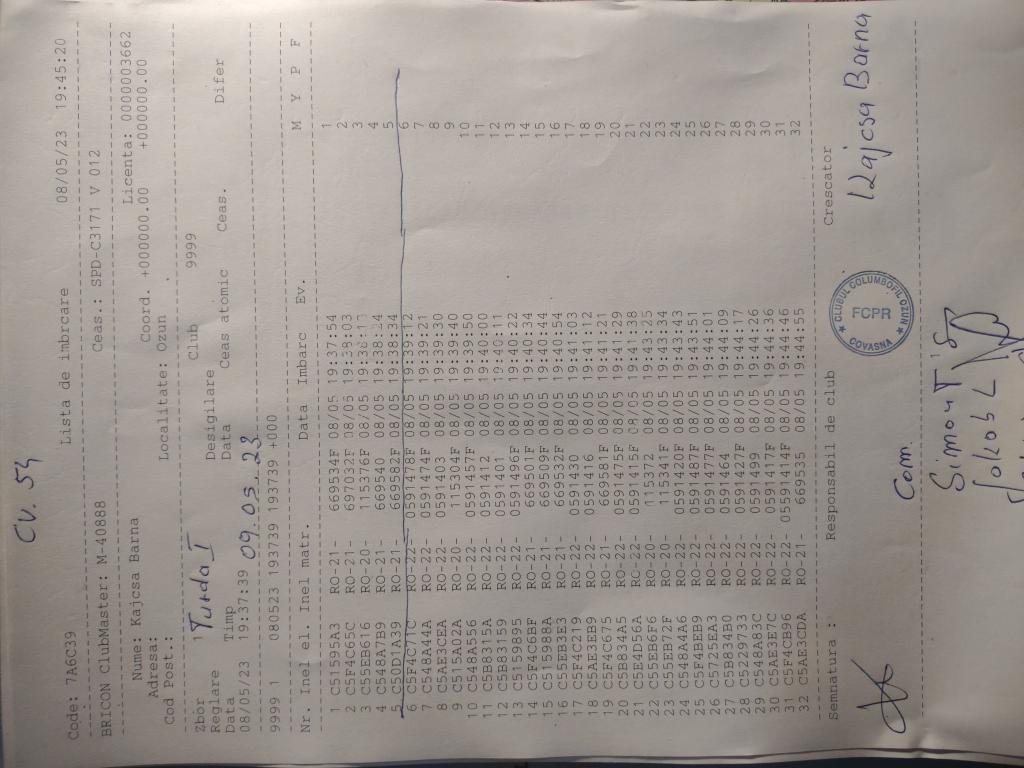 CV. 54
Code: 7A6C39 Lista de imbrcare 08/05/23 19:45:20
BRICON ClubMaster: M-40888 Ceas.: SPD-C3171 V 012
Nume: Kajcsa Barna Licenta: 0000003662
Adresa: Coord. +000000.00 +000000.00
Cod Post.: Localitate: Ozun .
Zbor 1 Turda I Club 9999
Reglare Desigilare
Data Timp Data Ceas atomic Ceas. Difer
08/05/23 19:37:39 09.05.23
9999 1 080523 193739 193739 +000
Nr. Inel el. Inel matr. Data Imbarc Ev. M Y P F
1 C51595A3 RO-21- 669534F 08/05 19:37:54 1
2 C5F4C65C RO-21- 697032F 08/05 19:38:03 2
3 C55EB616 RO-20- 115376F 08/05 3
4 C548A7B9 RO-21- 669540 08/05 19:38:24 4
5 C50D1A39 RO-21- 669582F 08/05 19:38:34 5
6 C5F4C71C RO-22- 0591478F 08/05 19:39:12 6
7 C548A44A RO-22- 0591474F 08/05 19:39:21 7
8 C5AE3CEA RO-22- 0591403 08/05 19:39:30 8
9 C515A02A RO-20- 115304F 08/05 19:39:40 9
10 C548A556 RO-22- 0591457F 08/05 19:39:50 10
11 C5B8315A RO-22- 0591412 08/05 19:40:00 11
12 C5B83159 RO-22- 0591401 08/05 19:40:11 12
13 C5159895 RO-22- 0591496F 08/05 19:40:22 13
14 C5F4C6BF RO-21- 669501F 08/05 19:40:34 14
15 C515988A RO-21- 669509F 08/05 19:40:44 15
16 C55EB3E3 RO-21- 669532F 08/05 19:40:54 16
17 C5F4C219 RO-22- 0591430 08/05 19:41:03 17
18 C5AE3EB9 RO-22- 0591416 08/05 19:41:12 18
19 C5F4C675 RO-21- 669581F 08/05 19:41:21 19
20 C5B834A5 RO-22- 0591475F 08/05 19:41:29 20
21 C5E4D56A RO-22- 0591415F 08/05 19:41:38 21
22 C55EB6F6 RO-20- 115372 08/05 19:43:25 22
23 C55EB72F RO-20- 115341F 08/05 19:43:34 23
24 C548A4A6 RO-22- 0591420F 08/05 19:43:43 24
25 C5F4BEB9 RO-22- 0591487F 08/05 19:43:51 25
26 C572BEA1 RO-22- 0591477F 08/05 19:44:01 26
27 C5B834B0 RO-22- 0591464 08/05 19:44:09 27
28 C5229733 RO-22- 0591427F 08/05 19:44:17 28
29 C548A83C RO-22- 0591499 08/05 19:44:26 29
30 C5AE3E7C RO-22- 0591417F 08/05 19:44:36 30
31 C5F4CB96 RO-22- 0591414F 08/05 19:44:46 31
32 C5AE3CDA RO-21- 669535 08/05 19:44:55 32
Semnatura : Responsabil de club Crescator
CLUBUL COLUMBOFIL OZUN
FCPR
COVASNA
Kajcsa Barna
Com.
Simon T
Jakob L